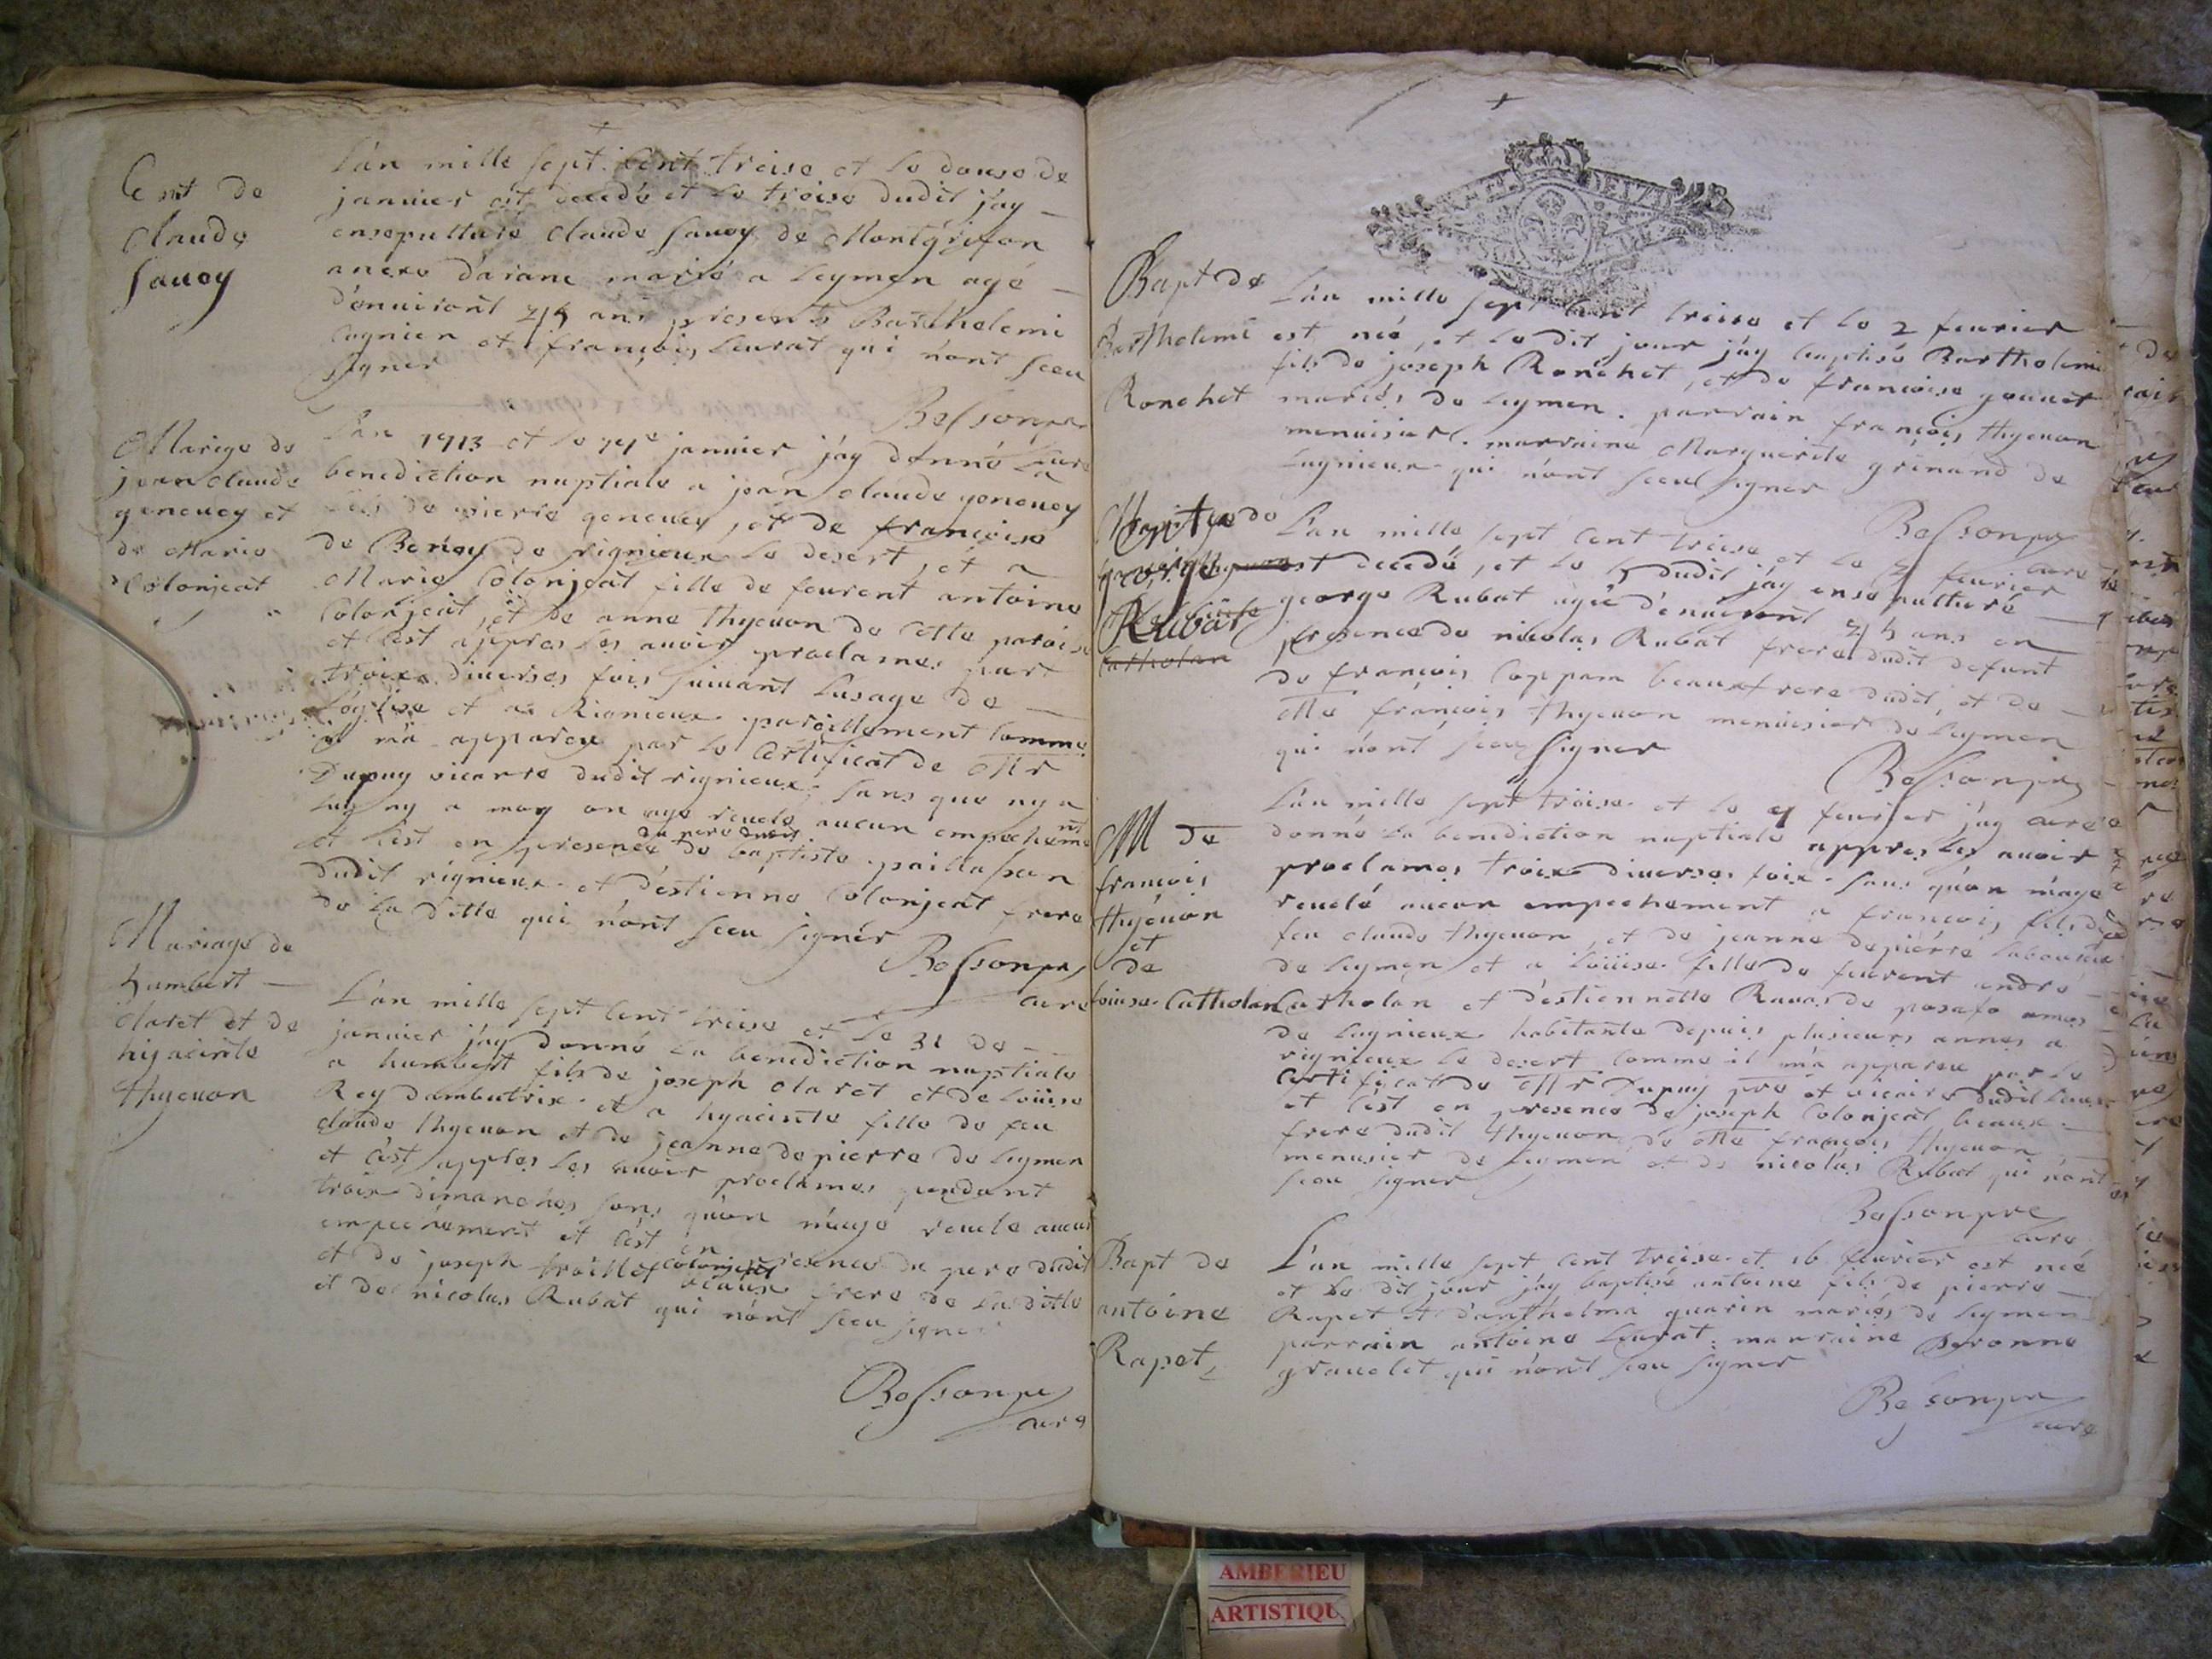 Ent de
Claude
Sauoy
L'an mille sept cent treise et le douse de
januier est decedé et le treise dudit j'ay
ensepulturé Claude Sauoy de Montgrifon
anexe d'aranc marié a Leymen agé
d'enuiront 45 ans presents Barthelemi
Cognien et françois Leurat qui n'ont sceu
signer
Bessonpre
curé
Mariege de
jean claude
geneuey et
de Marie
Colonjeat
L'an 1713 et le 17e januier j'ay donné la
benediction nuptiale a jean claude geneuey
fils de pierre geneuey, et de françoise
de Benoy de rignieux le desert, et a
Marie Colonjeat fille de feurent antoine
Colonjeat, et de anne thyeuon de cette paroise
et c'est appres les auoir proclames par
troix diuerses fois suiuant l'usage de
l'eglise et a Rignieux pareillement comme
il m'a appareu par le certificat de Mr
Dupuy vicaire dudit rignieux, sans que ny a
luy ny a moy on aye reuelé aucun empechemt
et c'est en presence du pere dudit de baptiste paillasson
dudit rignieux et d'estienne Colonjeat frere
de la ditte qui n'ont sceu signer
Bessonpre
curé
Mariage de
humbert
claret et de
hyacinte
thyeuon
L'an mille sept cent treise et le 31 de
januier j'ay donné la benediction nuptiale
a humbert fils de joseph claret et de Loüise
Rey d'ambutrix et a hyacinte fille de feu
claude thyeuon et de jeanne depierre de Leymen
et c'est appres les auoir proclames pendant
troix dimanches sans qu'on m'aye reuele aucun
empechement et c'est en presence du pere dudit
et de joseph colonjeat beaux frere de la ditte
et de nicolas Rubat qui n'ont sceu signer
Bessonpre
curé
Bapt de
Barthelemi
Ronchet
L'an mille sept cent treise et le 2 feurier
est né, et le dit jour j'ay baptisé Barthelemi
fils de joseph Ronchet, et de francoise gounet
mariés de Leymen. parrain françois thyeuon
menuisier. marraine Marguerite grinand de
Lagnieux qui n'ont sceu signer
Bessonpre
curé
george
Rubat
Catholan
L'an mille sept cent treise et le 4 feurier
est decedé, et le 5 dudit j'ay ensepulturé
george Rubat agé d'enuiront 45 ans en
presence de nicolas Rubat frere dudit defunt
de françois Coppara beaux frere dudit, et de
Me françois thyeuon menuisier de Leymen
qui n'ont sceu signer
Bessonpre
curé
M de
francois
thyeuon
et
de
Loiuse Catholan
L'an mille sept treise et le 9 feurier j'ay
donné la benediction nuptiale appres les auoir
proclames troix diuerses foix sans qu'on m'aye
reuelé aucun empechement a françois fils de
feu claude thyeuon, et de jeanne depierre laboureur
de Leymen et a Loüise fille de feurent andré
Catholan et d'estiennette Rauas de posafo
de Lagnieux habitante depuis plusieurs annes a
rignieux le desert comme il m'a apparu par le
certificat de Mr Dupuy pre et vicaire dudit lieux
et c'est en presence de joseph Colonjeat beaux
frere dudit thyeuon de Me françois thyeuon
menusier de Leymen et de nicolas Rubat qui n'ont
sceu signer
Bessonpre
curé
Bapt de
antoine
Rapet
L'an mille sept cent treise et 16 feurier est né
et le dit jour j'ay baptisé antoine fils de pierre
Rapet et d'anthelma guarin mariés de Leymen
parrain antoine Leurat: marraine Peronne
grauelet qui n'ont sceu signer
Bessonpre
curé
AMBERIEU
ARTISTIQU